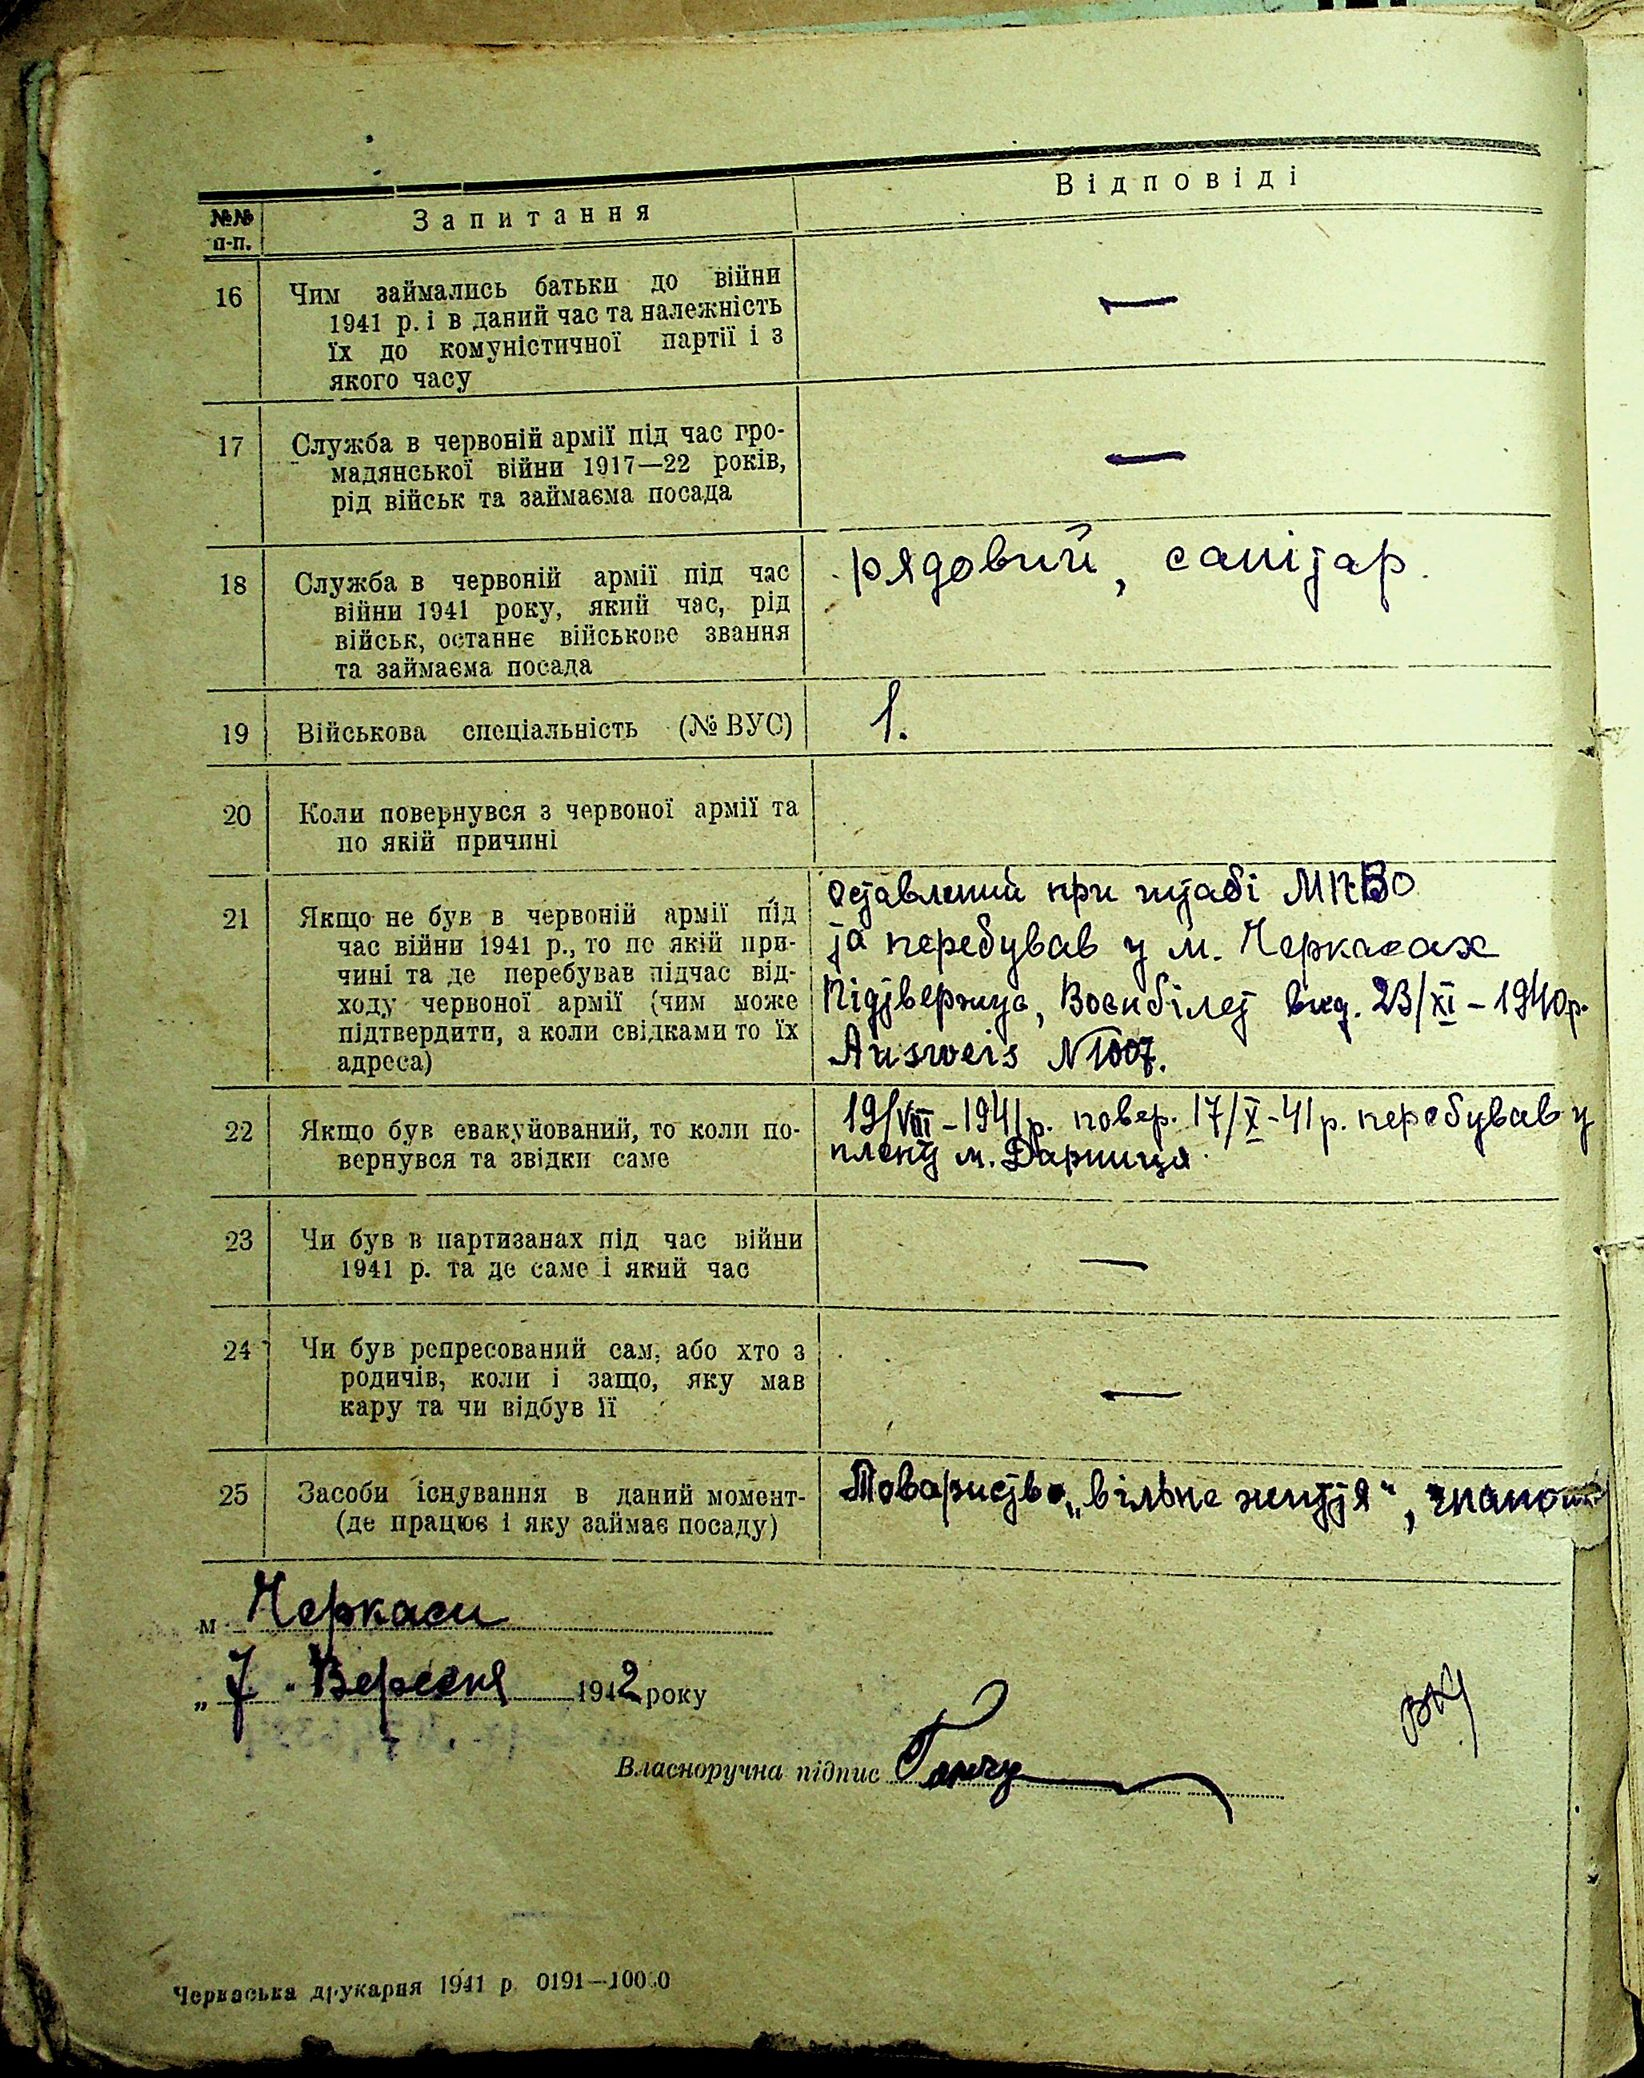 Відповіді
№№ п-п.
Запитання
16
Чим займались батьки до війни
1941 р. і в даний час та належність
їх до комуністичної партії і з
якого часу
—
17
Служба в червоній армії під час гро-
мадянської війни 1917—22 років,
рід військ та займаєма посада
—
18
Служба в червоній армії під час
війни 1941 року, який час, рід
військ, останнє військове звання
та займаєма посада
рядовий, санітар.
19
Військова спеціальність (№ ВУС)
1.
20
Коли повернувся з червоної армії та
по якій причині
21
Якщо не був в червоній армії під
час війни 1941 р., то по якій при-
чині та де перебував підчас від-
ходу червоної армії (чим може
підтвердити, а коли свідками то їх
адреса)
Оставлений при штабі МПВО
та перебував у м. Черкасах
Підтвержує, Воєнбілет вид. 23/XI – 1940 р.
Ausweis N 1007.
22
Якщо був евакуйований, то коли по-
вернувся та звідки саме
19/VIII – 1941 р. повер. 17/X – 41 р. перебував у
плену м. Дарниця.
23
Чи був в партизанах під час війни
1941 р. та де саме і який час
—
24
Чи був репресований сам, або хто з
родичів, коли і защо, яку мав
кару та чи відбув її
—
25
Засоби існування в даний момент-
(де працює і яку займає посаду)
Товариство „вільне життя“,
м Черкаси
„ 7 „ Вересня 1942 року
Власноручна підпис
Черкаська друкарня 1941 р. 0191—10000